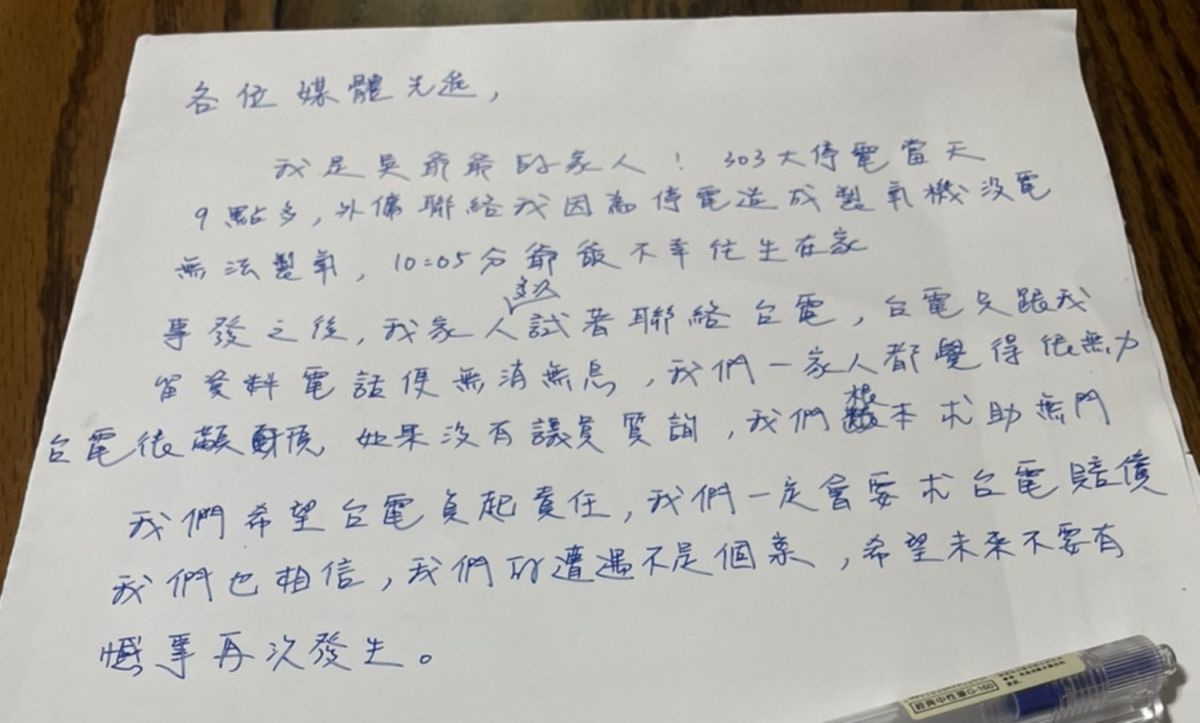 各位媒體先進,
我是吳爺爺的家人! 303大停電當天
9點多,外傭聯絡我因為停電造成製氧機沒電
無法製氧,10:05分爺爺不幸往生在家
多次
事發之後,我家人試著聯絡台電,台電只跟我
留資料電話便無消無息,我們一家人都覺得很無力
台電很顢頇,如果沒有議員質詢,我們根本求助無門
我們希望台電負起責任,我們一定會要求台電賠償
我們也相信,我們的遭遇不是個案,希望未來不要有
憾事再次發生。
經典中性筆G-160